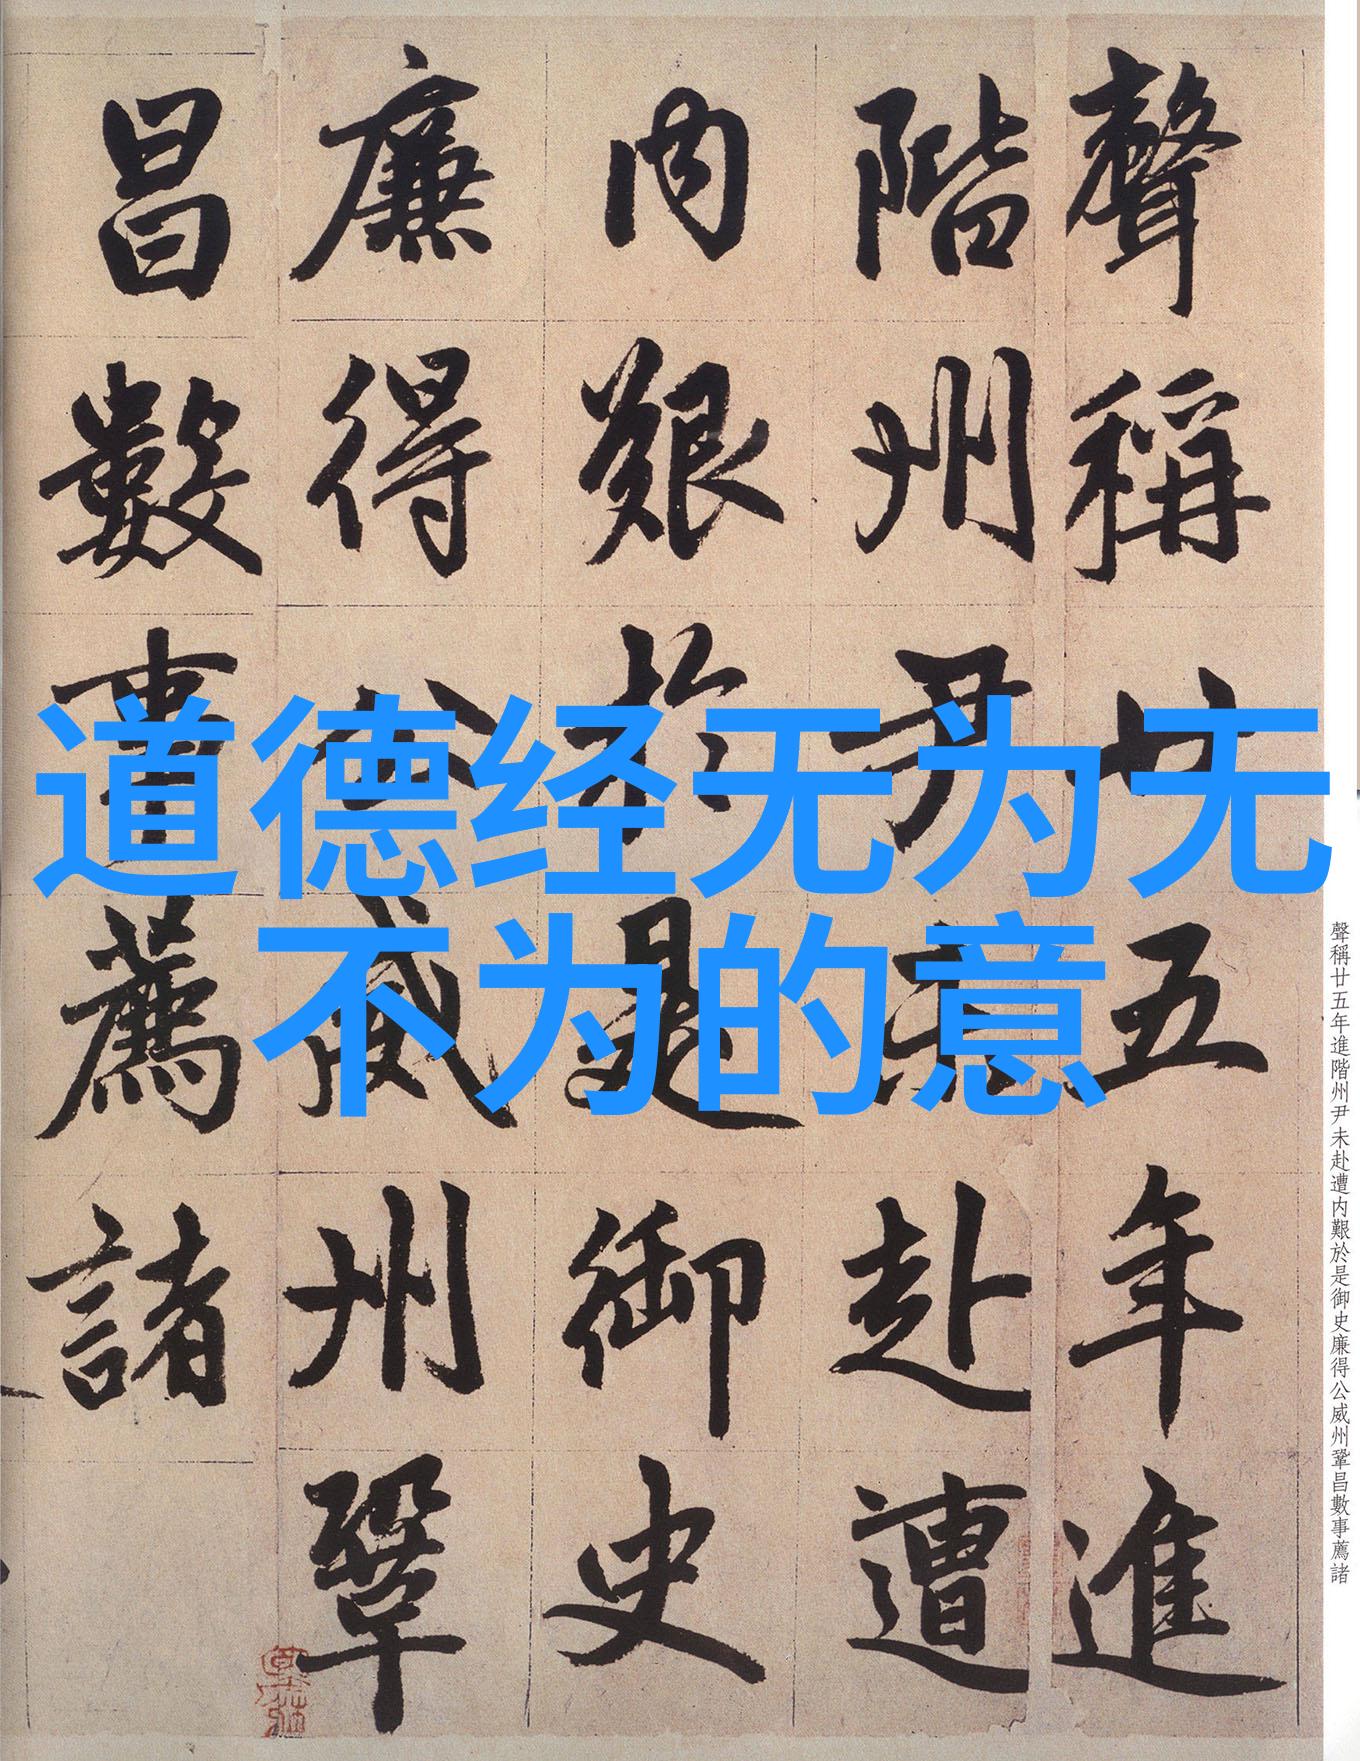 聲稱廿五年進
階州尹未赴遭
内艱於是御史
廉得公威州鞏
昌數事薦諸
道德经无为无
不为的意
聲稱廿五年進階州尹未赴遭内艱於是御史廉得公威州鞏昌數事薦諸